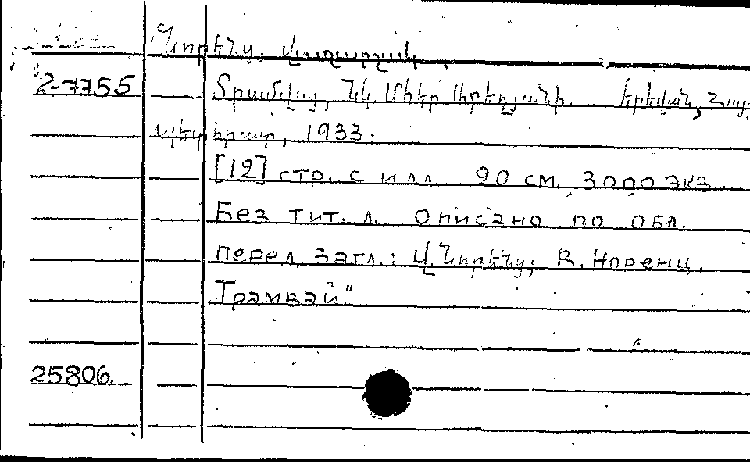 Նորենց. Վաղարշակ.
2-7755 Տրամվայ, Նկ. Մհեր Աբեղյանի. Երևան, Հայ.
պետհրատ, 1933.
[12] стр. с илл. 20 см. 3000 экз.
Без тит. л. Описано по обл.
перед загл.: Վ. Նորենց; В. Норенц.
Трамвай"
25806